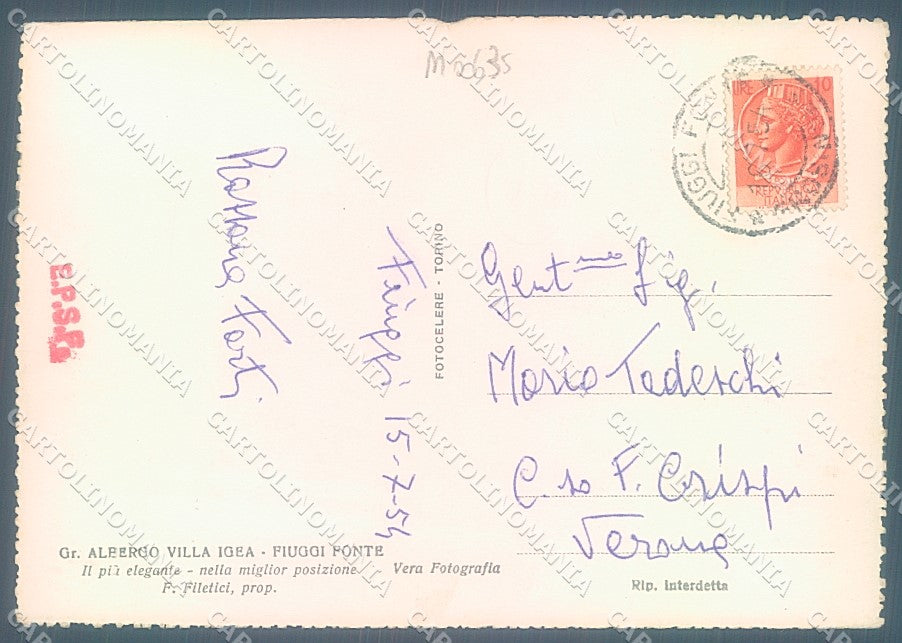 LIRE 10
ITALIANA
FIUGGI
E.P.S.F.
Fiuggi 15-7-54
FOTOCELERE - TORINO
Gent.mo Sig.
Mario Tedeschi
C.so F. Crispi
Verona
Gr. ALBERGO VILLA IGEA - FIUGGI FONTE
Il più elegante - nella miglior posizione
F. Filetici, prop.
Vera Fotografia
Rip. interdetta
CARTOLINOMANIA